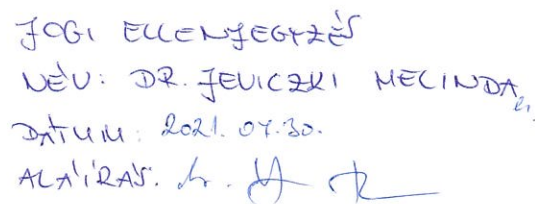 JOGI ELLENJEGYZÉS
NÉV: DR. JEVICZKI MELINDA
DÁTUM: 2021. 04. 30.
ALÁÍRÁS: